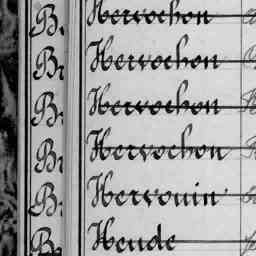 B. Hervochon
Br Hervochon
Br Hervochon
Br Hervochon
Br Hervouin
Br Heude